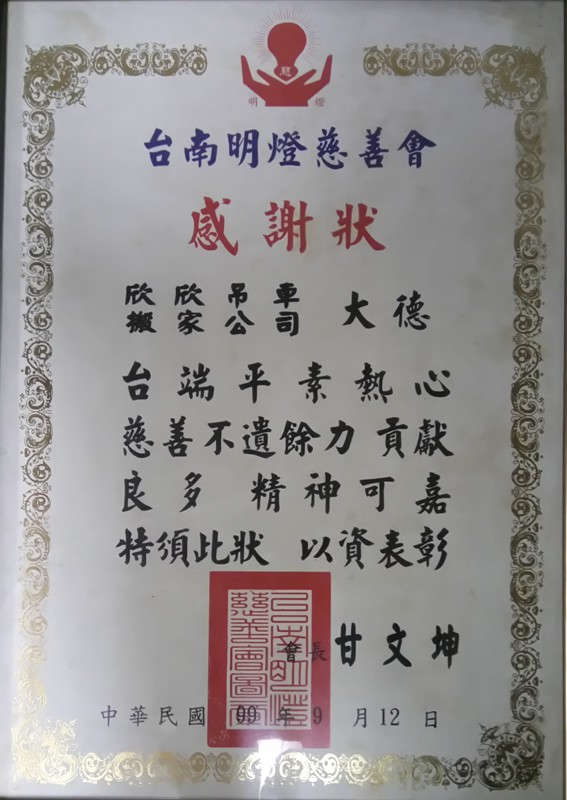 慈
明 燈
台南明燈慈善會
感謝狀
欣欣吊車
搬家公司 大德
台端平素熱心
慈善不遺餘力 貢獻
良多 精神可嘉
特須此狀 以資表彰
會長 甘文坤
中華民國 99 年 9 月 12 日